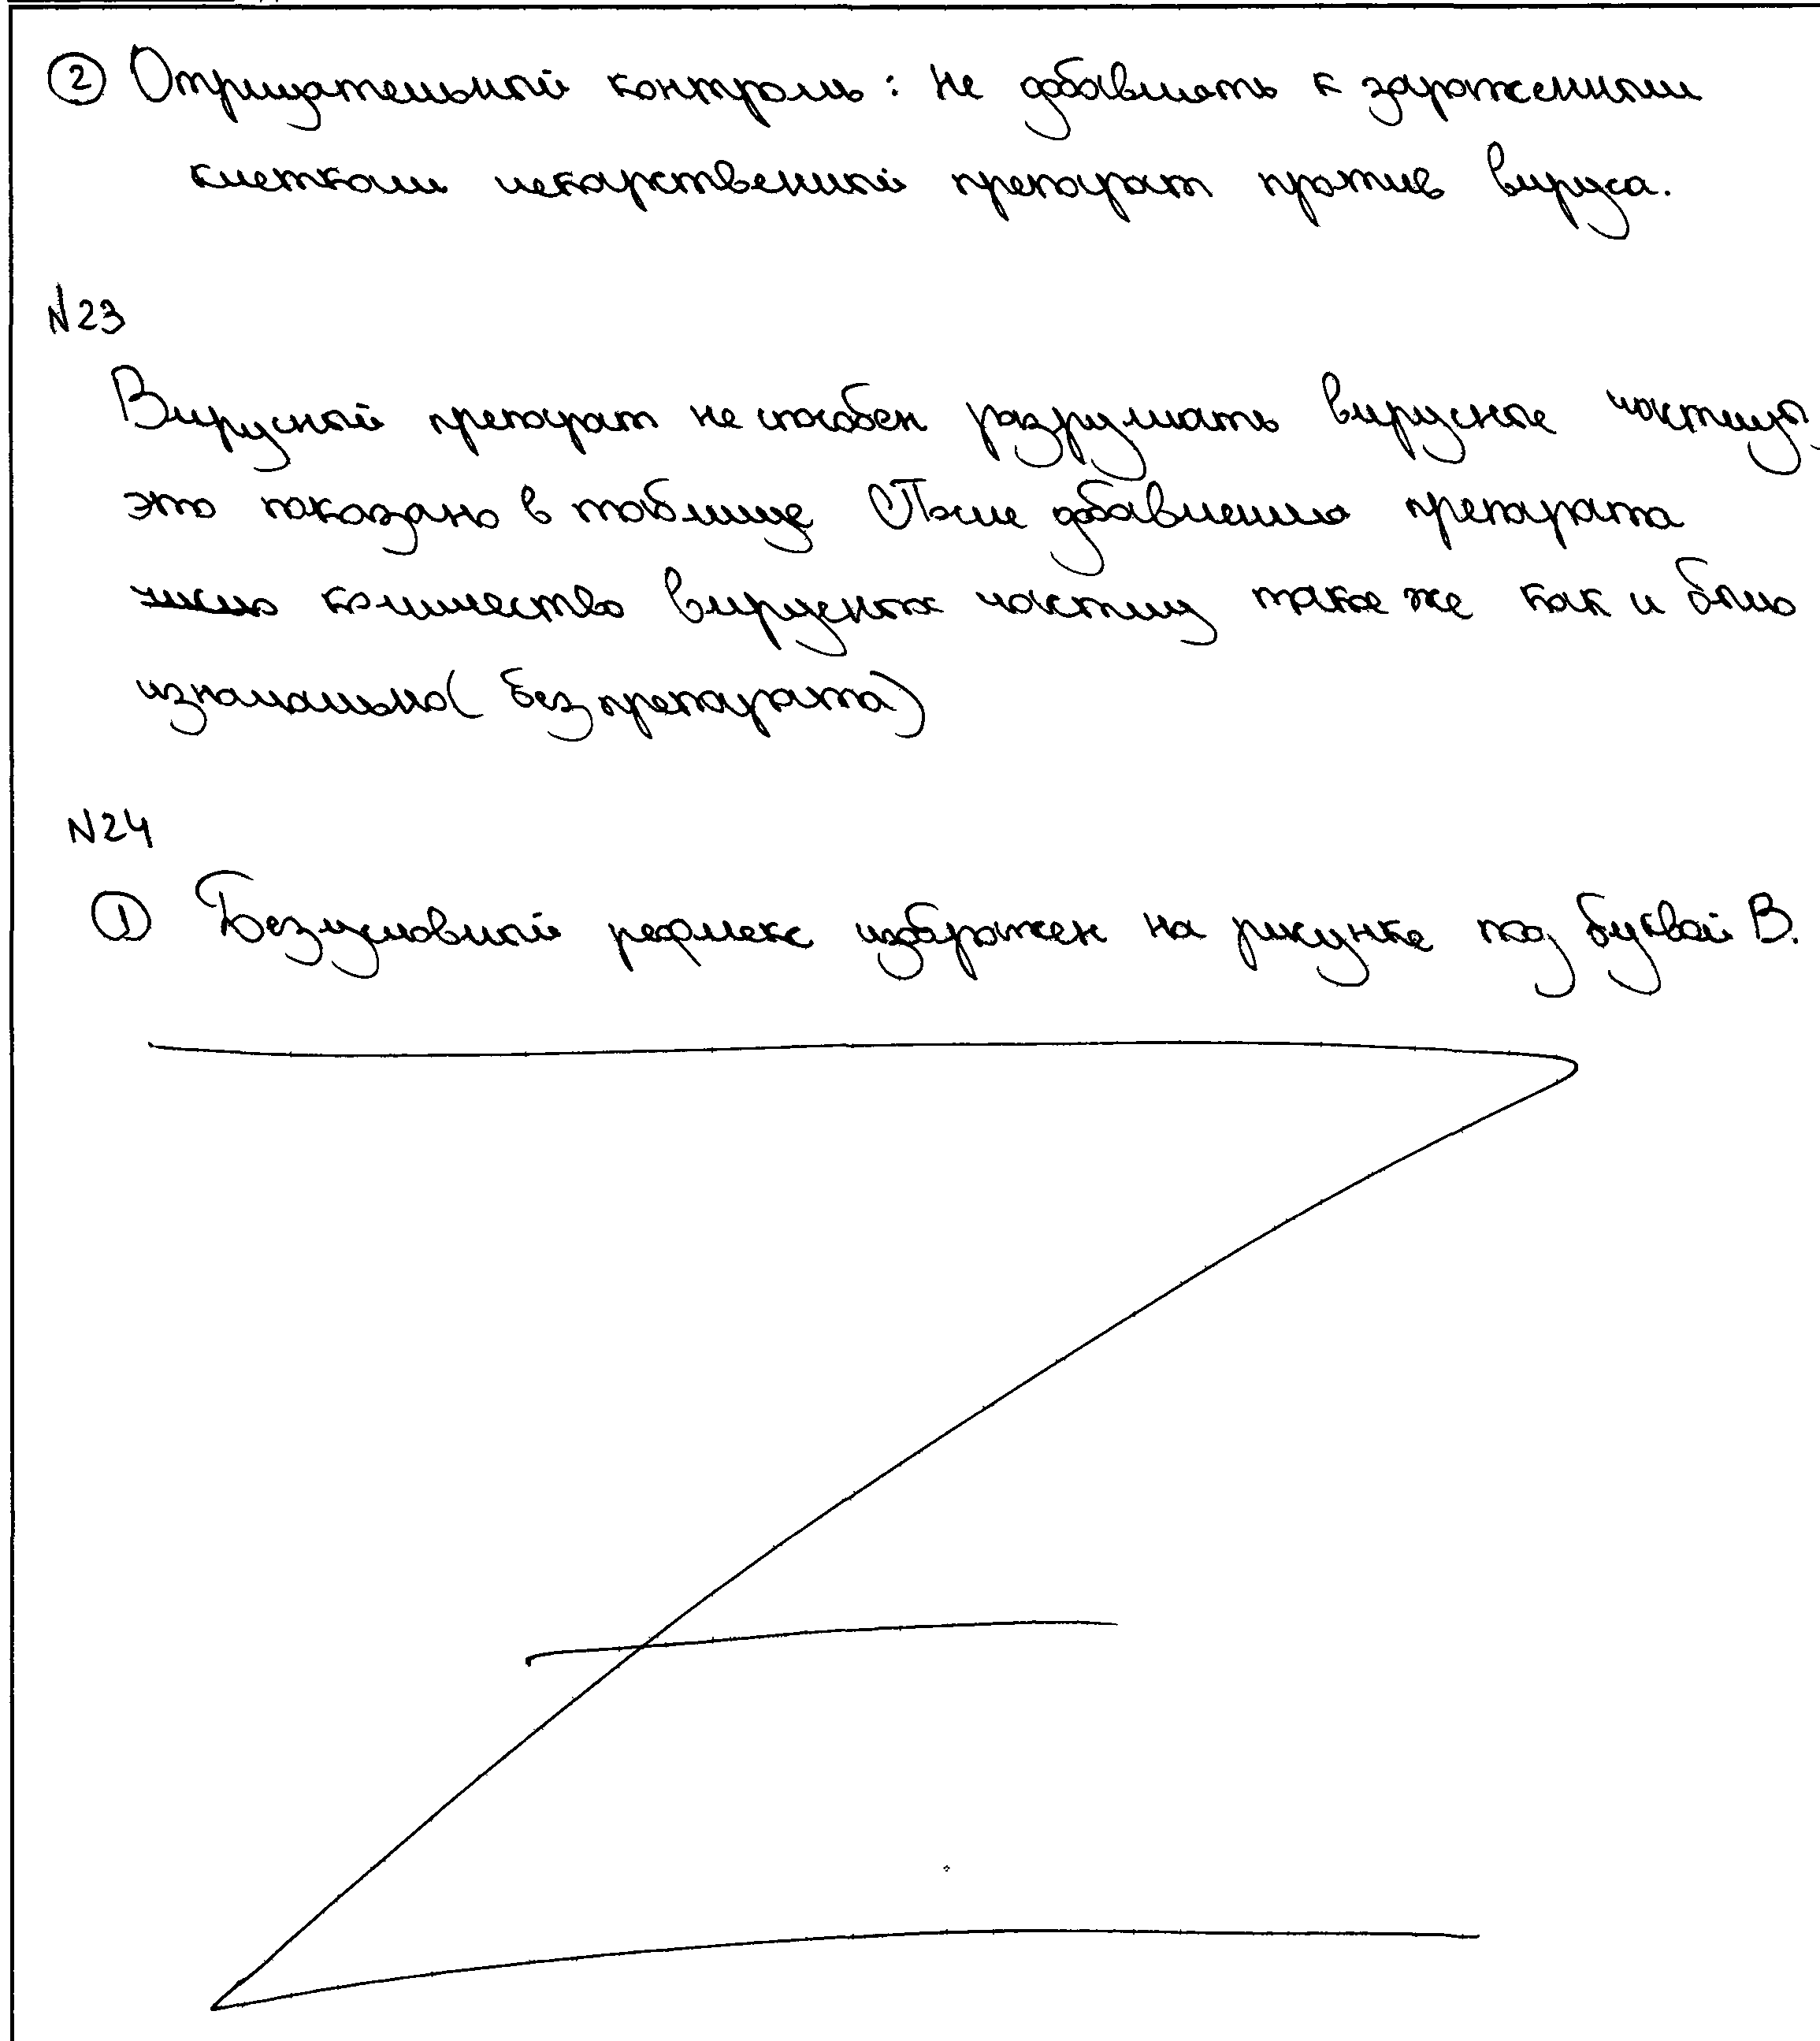 ② Отрицательный контроль: не добавлять к зараженным
клеткам лекарственный препарат против вируса.
N23
Вирусный препарат не способен разрушать вирусные частицы,
это показано в таблице После добавления препарата
число количество вирусных частиц такое же как и было
изначально( без препарата)
N24
① Безусловный рефлекс изображен на рисунке под буквой В.